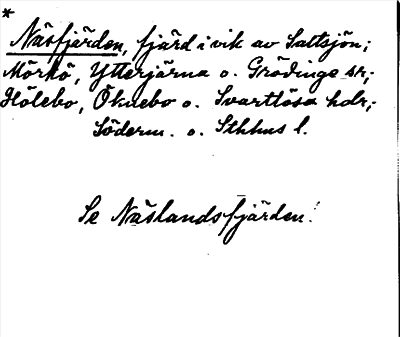 *
Näsfjärden, fjärd i vik av Saltsjön;
Mörkö, Ytterjärna o. Grödinge sn;
Hölebo, Öknebo o. Svartlösa hdr;
Söderm. o. Sthlms l.
Se Näslandsfjärden!